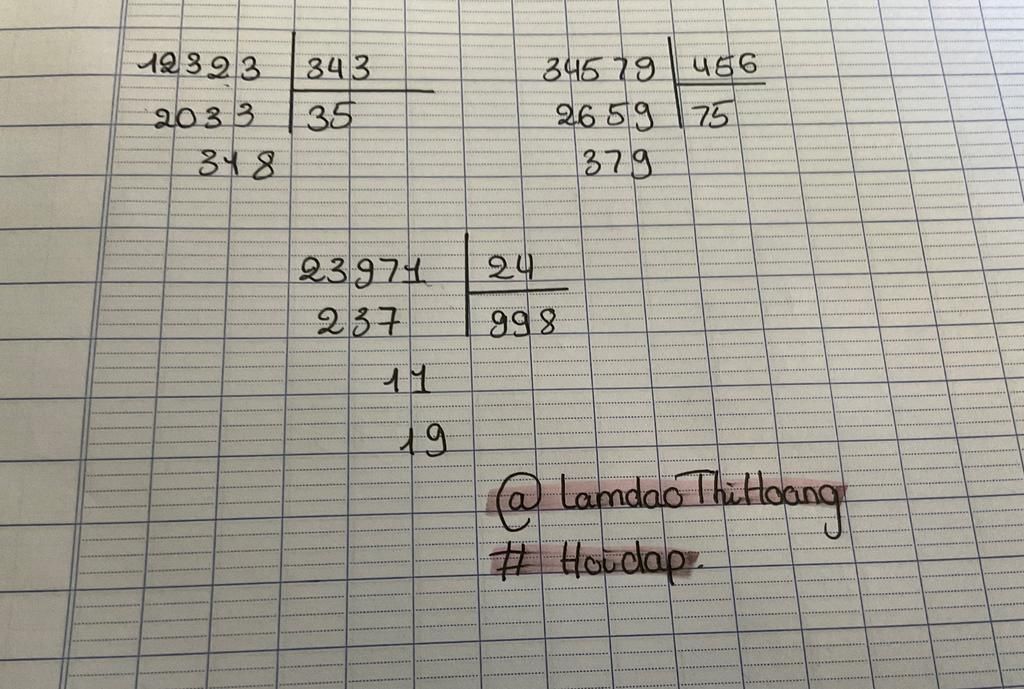 12323 343
2033 35
318
34579 456
2659 75
379
23971 24
237 998
11
19
@ LamdaoThiHoang
# Hoidap.